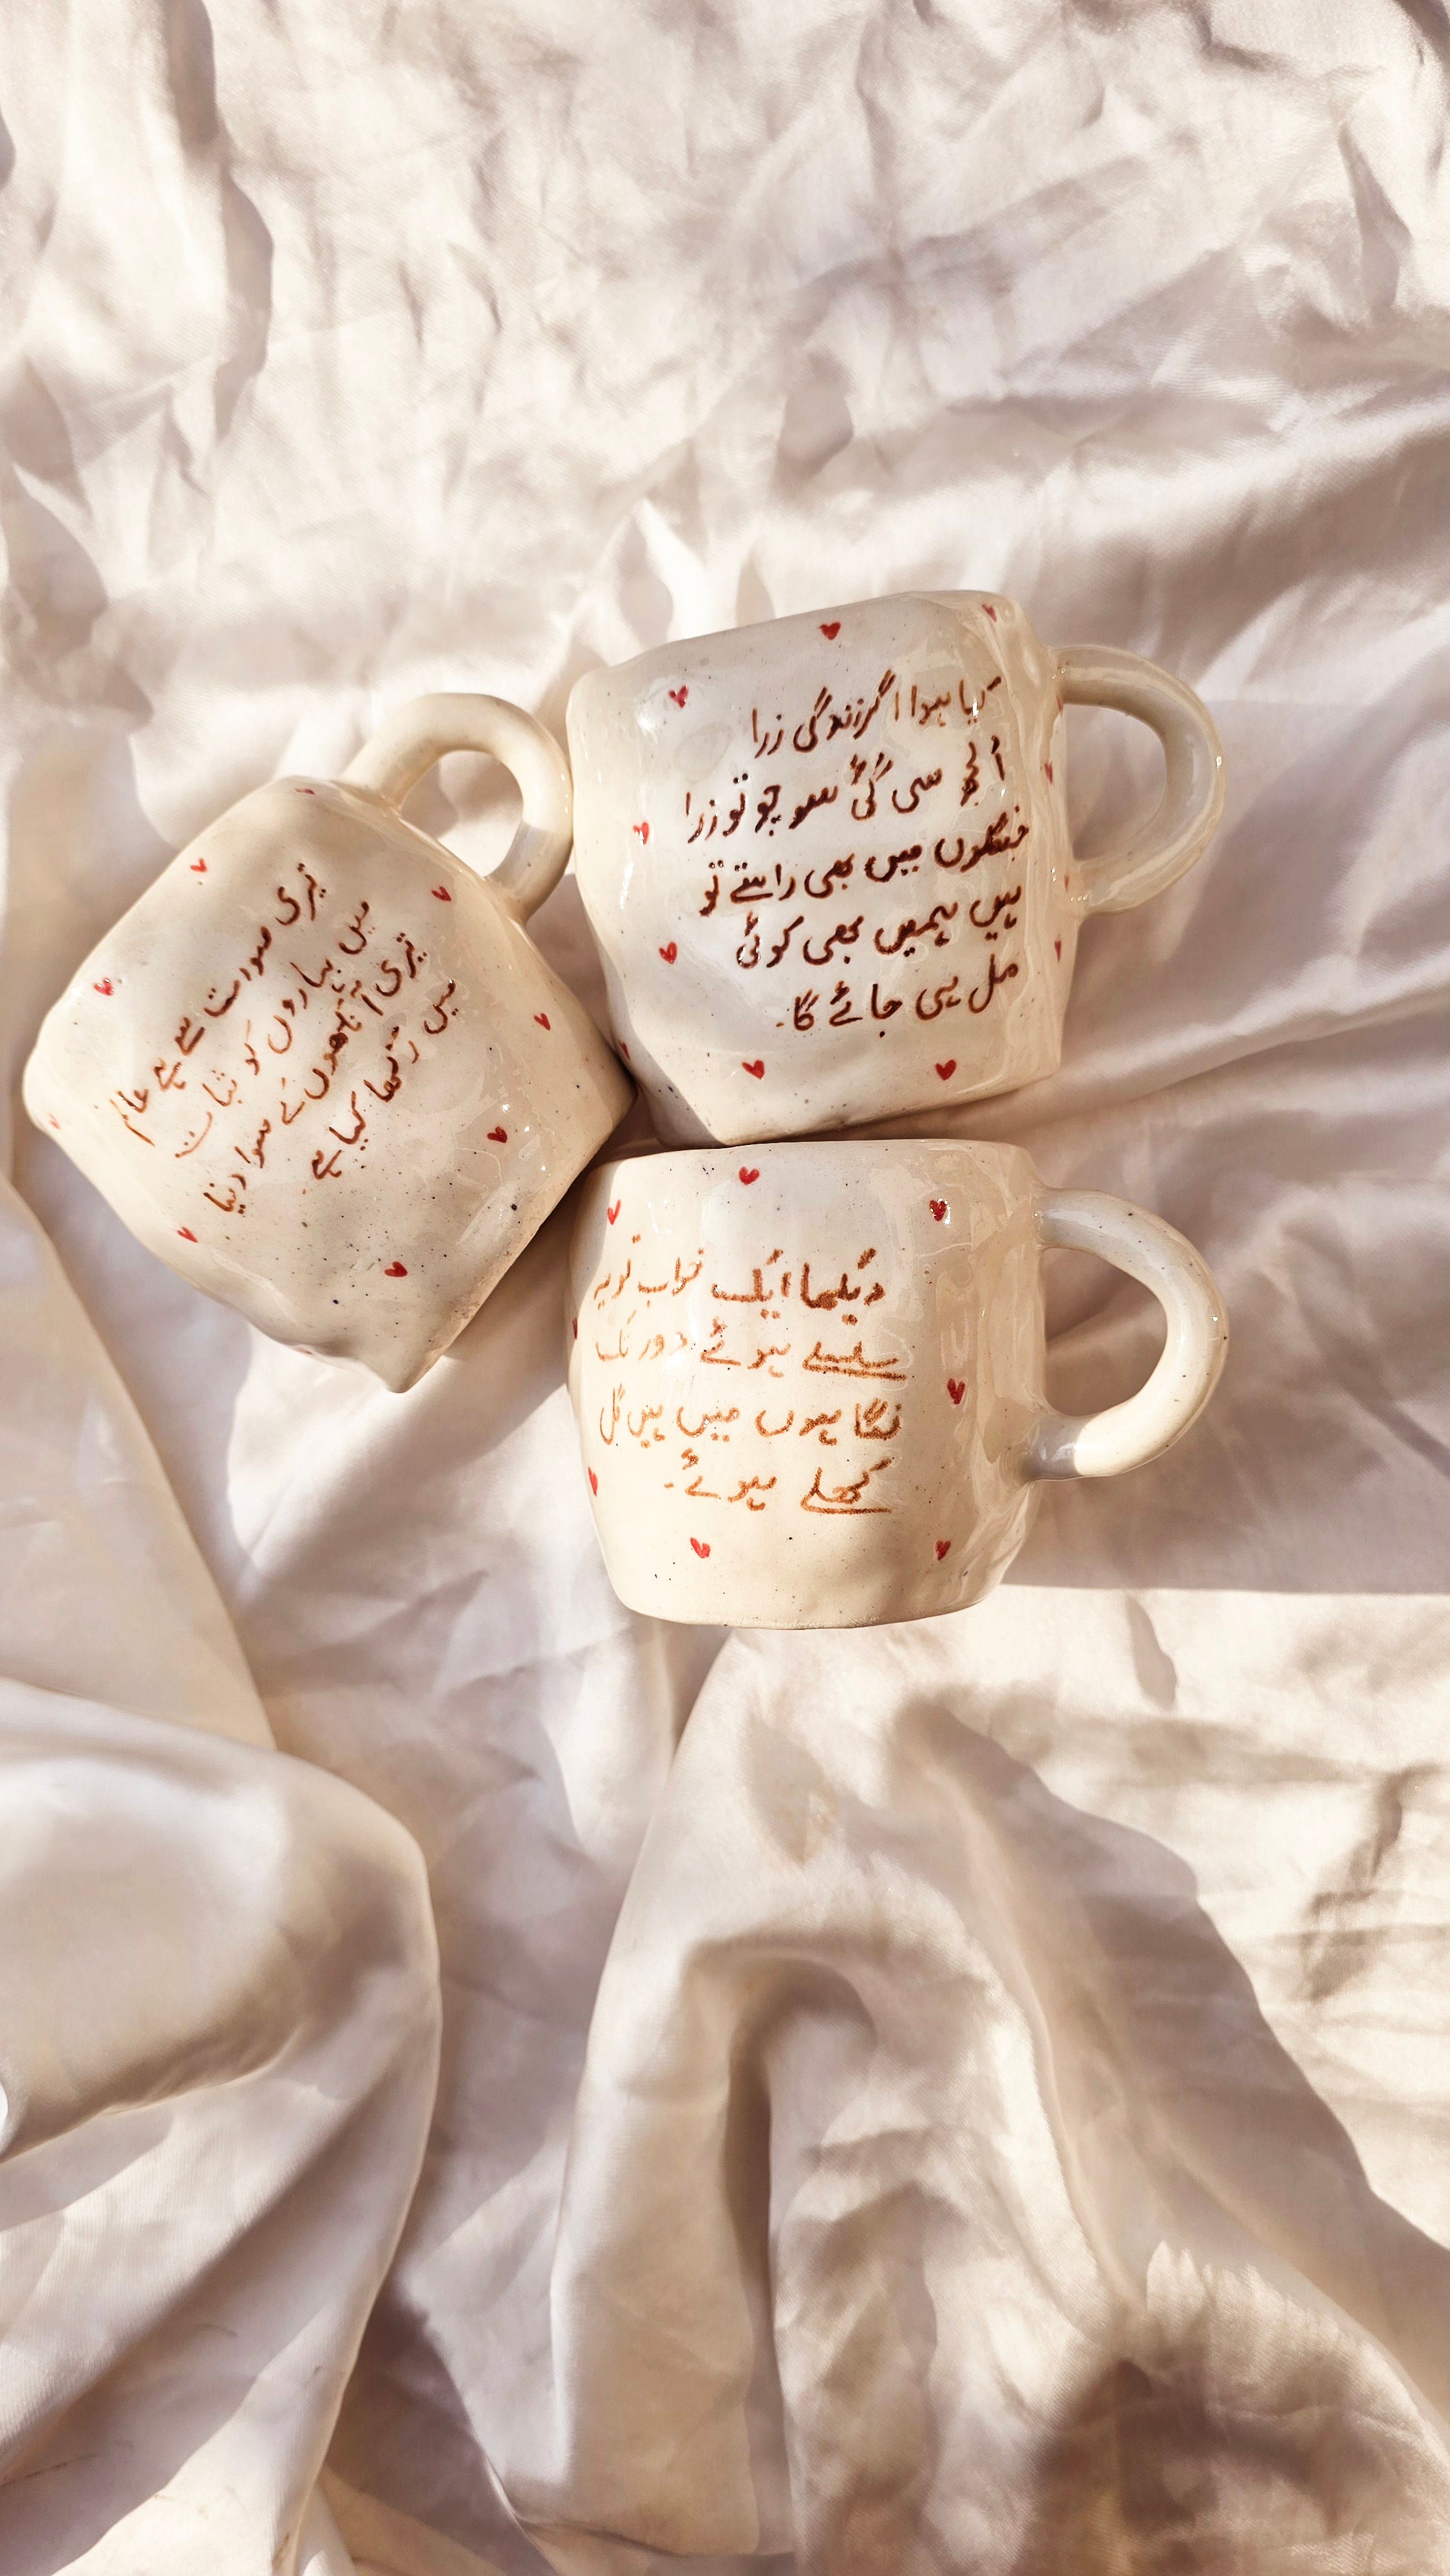 کیا ہوا اگر زندگی زرا
اُلجھ سی گئی سوچو تو زرا
جنگلوں میں بھی راستے تو
ہیں ہمیں بھی کوئی
مل ہی جائے گا۔
تیری صورت سے ہے عالم
میں بہاروں کو ثبات
تیری آنکھوں کے سوا دنیا
میں رکھا کیا ہے
دیکھا ایک خواب تو یہ
سلسلے ہوئے دور تک
نگاہوں میں ہیں گل
کھلے ہوئے۔